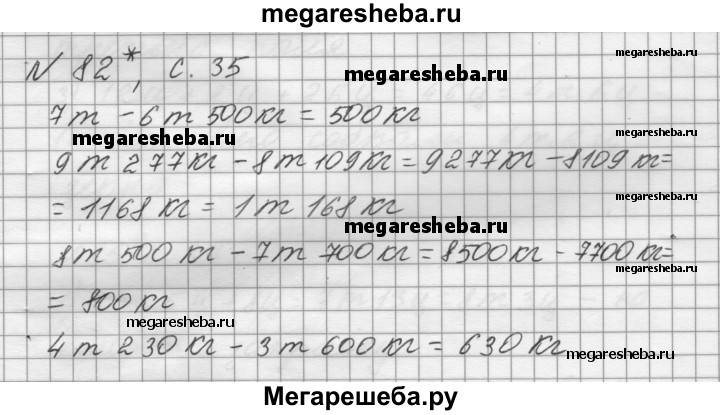 megaresheba.ru
N 82*, с. 35
megaresheba.ru
megaresheba.ru
7 т - 6 т 500 кг = 500 кг
megaresheba.ru
9 т 277 кг - 8 т 109 кг = 9277 кг - 8109 кг =
= 1168 кг = 1 т 168 кг
megaresheba.ru
8 т 500 кг - 7 т 700 кг = 8500 кг - 7700 кг =
megaresheba.ru
= 800 кг
megaresheba.ru
4 т 230 кг - 3 т 600 кг = 630 кг
megaresheba.ru
Мегарешеба.ру